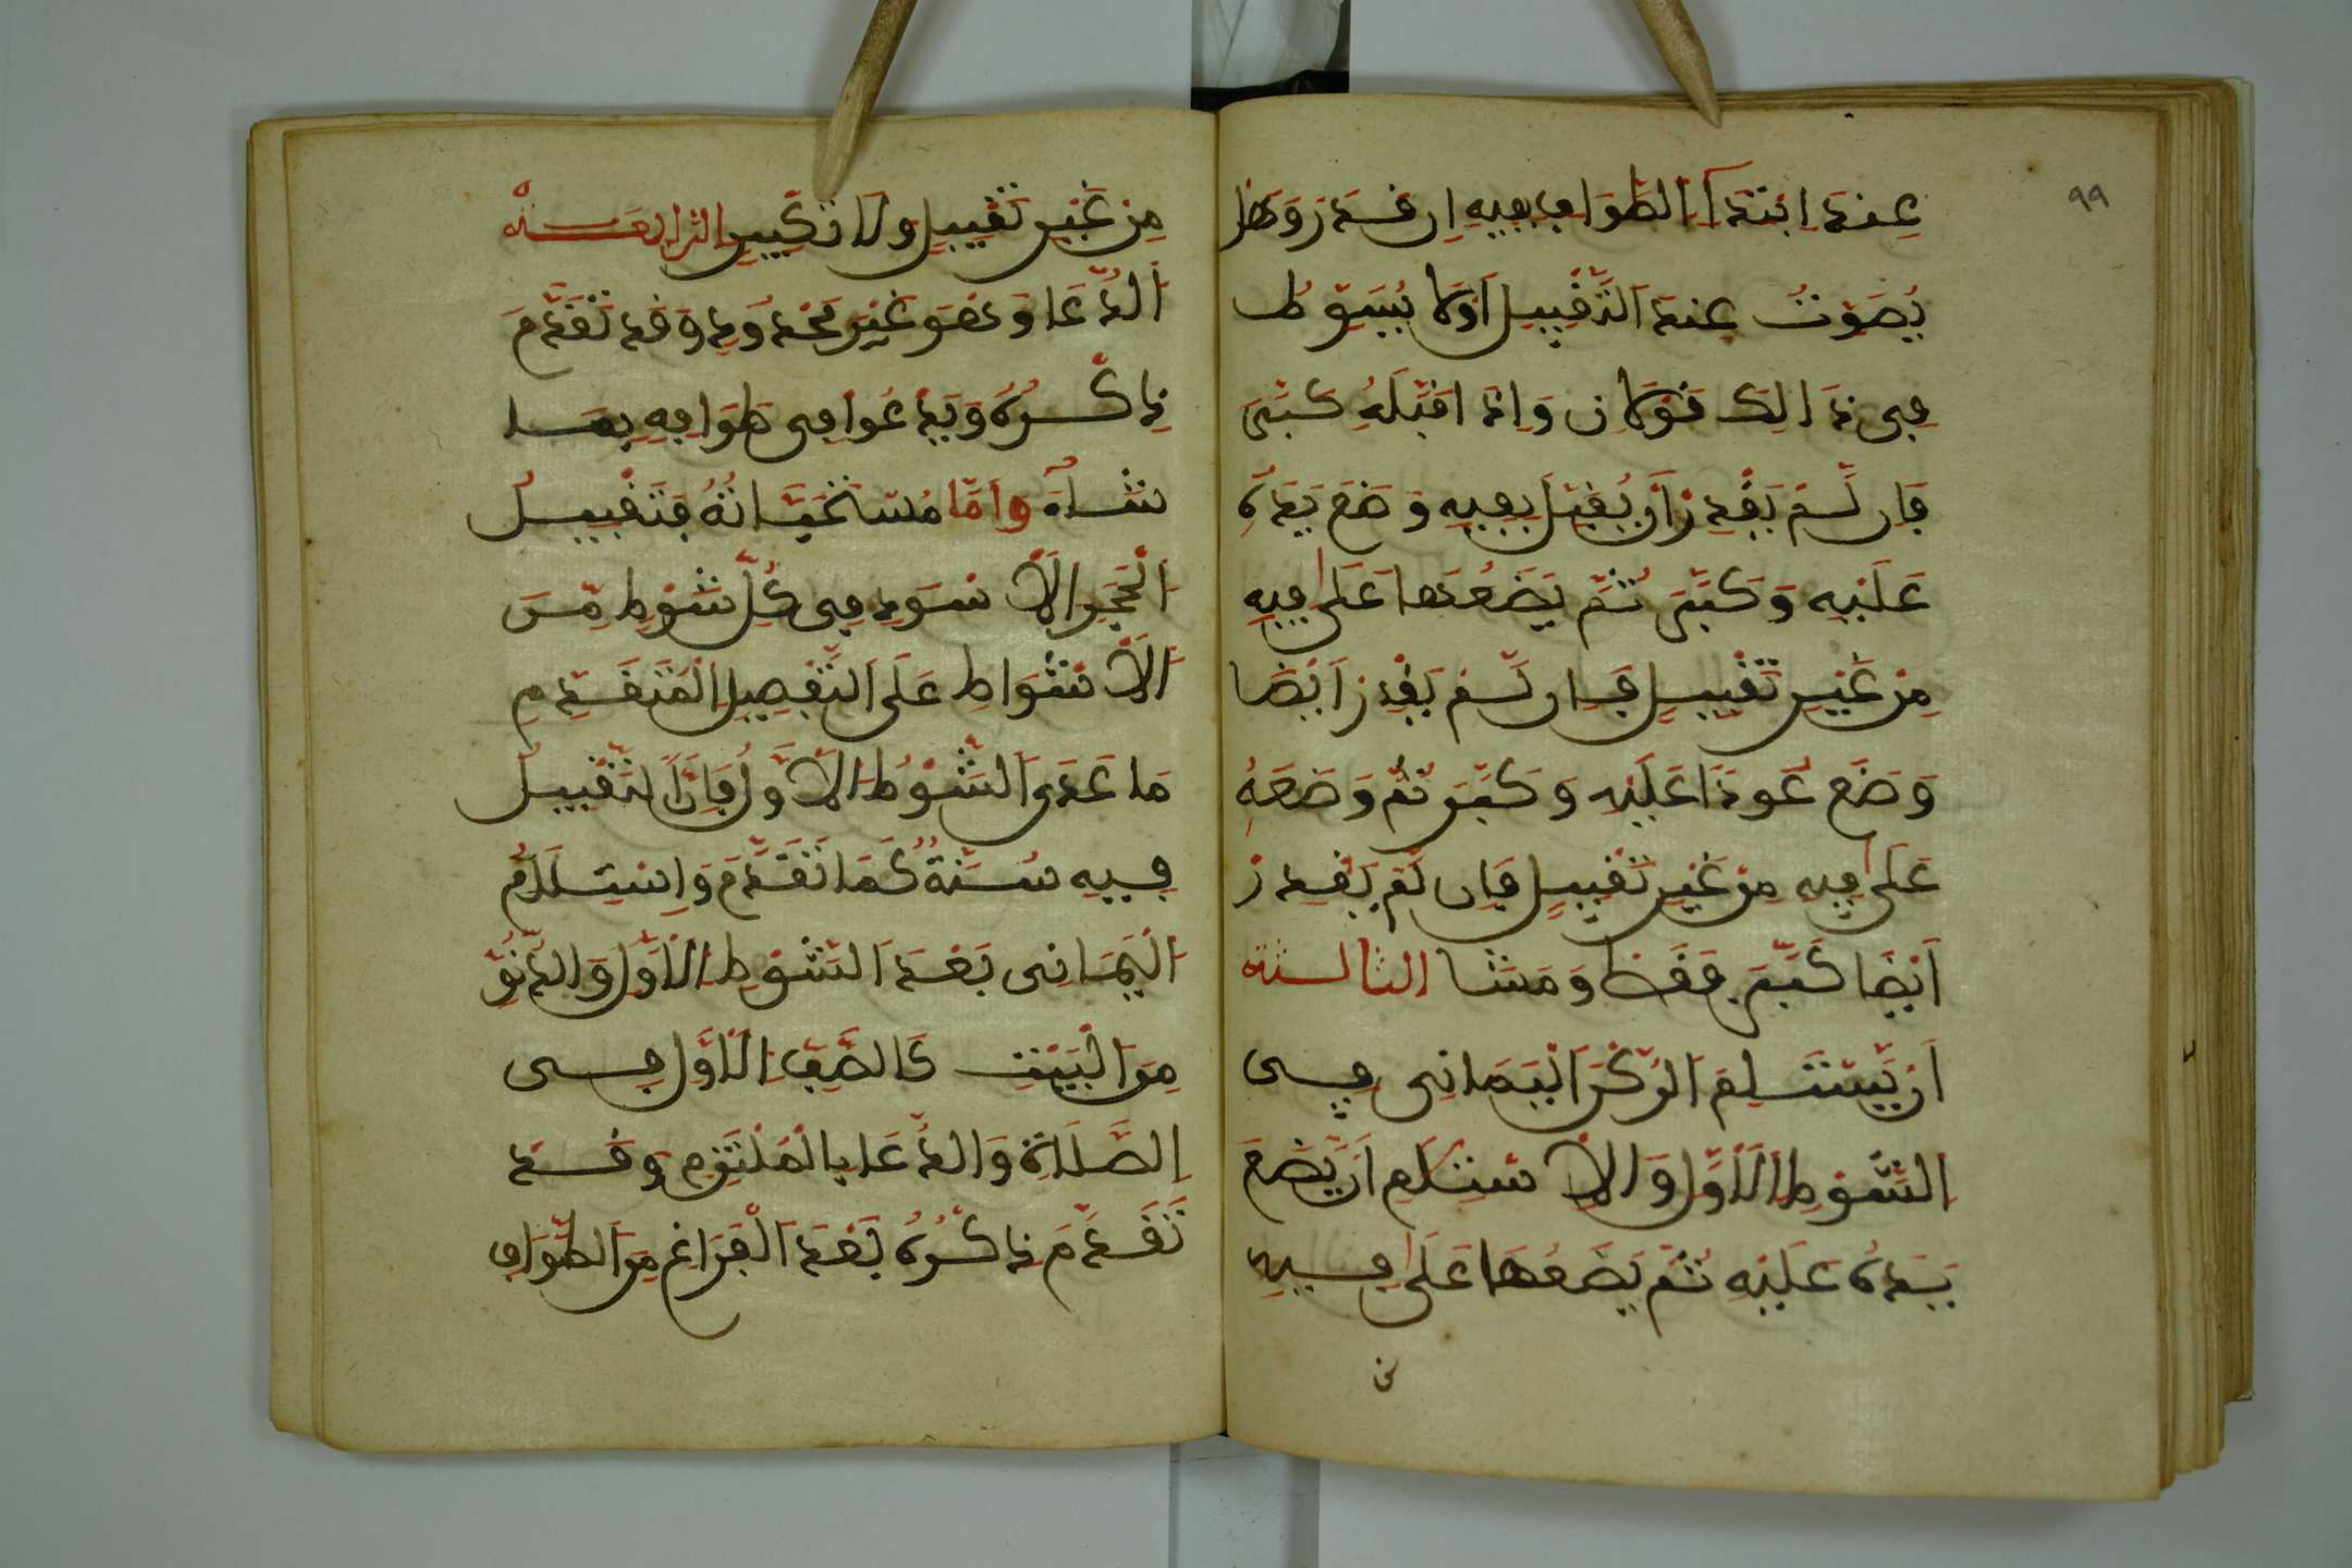 ٩٩
عِندَ ابْتِدَاءِ الطَّوَافِ بِفِيهِ إِن قَدَرَ وَهَل
يُصَوِّتُ عِندَ التَّقْبِيلِ أَوْ لَا يُصَوِّتُ
فِي ذَالِكَ قَوْلَانِ وَإِذَا قَبَّلَهُ كَبَّرَ
فَإِن لَّمْ يَقْدِرْ أَن يُقَبِّلَ بِفِيهِ وَضَعَ يَدَهُ
عَلَيْهِ وَكَبَّرَ ثُمَّ يَضَعُهَا عَلَى فِيهِ
مِنْ غَيْرِ تَقْبِيلٍ فَإِن لَّمْ يَقْدِرْ أَيْضًا
وَضَعَ عُودًا عَلَيْهِ وَكَبَّرَ ثُمَّ وَضَعَهُ
عَلَى فِيهِ مِنْ غَيْرِ تَقْبِيلٍ فَإِن لَّمْ يَقْدِرْ
أَيْضًا كَبَّرَ فَقَطْ وَمَشَا الثالثة
أَن يَّسْتَلِمَ الرُّكْنَ الْيَمَانِي فِي
الشَّوْطِ الْأَوَّلِ وَالْاسْتِلَامِ أَن يَّضَعَ
يَدَهُ عَلَيْهِ ثُمَّ يَضَعُهَا عَلَى فِيهِ
مِنْ غَيْرِ تَقْبِيلٍ وَلَا تَكْبِيرٍ الرابعة
الدُّعَا وَهُوَ غَيْرُ مَحْدُودٍ وَقَدْ تَقَدَّمَ
ذِكْرُهُ وَيَدْعُوا فِي طَوَافِهِ بِمَا
شَاءَ وَأَمَّا مُسْتَحَبَّاتُهُ فَتَقْبِيلُ
الْحَجَرِ الْأَسْوَدِ فِي كُلِّ شَوْطٍ مِّنَ
الْأَشْوَاطِ عَلَى التَّفْصِيلِ الْمُتَقَدِّمِ
مَا عَدَى الشَّوْطِ الْأَوَّلِ فَإِنَّ التَّقْبِيلَ
فِيهِ سُنَّةٌ كَمَا تَقَدَّمَ وَاسْتِلَامُ
الْيَمَانِي بَعْدَ الشَّوْطِ الْأَوَّلِ وَالدُّنُوِّ
مِنَ الْبَيْتِ كَالصَّفِّ الْأَوَّلِ فِي
الصَّلَاةِ وَالدُّعَا بِالْمُلْتَزِمِ وَقَدْ
تَقَدَّمَ ذِكْرُهُ بَعْدَ الْفَرَاغِ مِنَ الطَّوَافِ